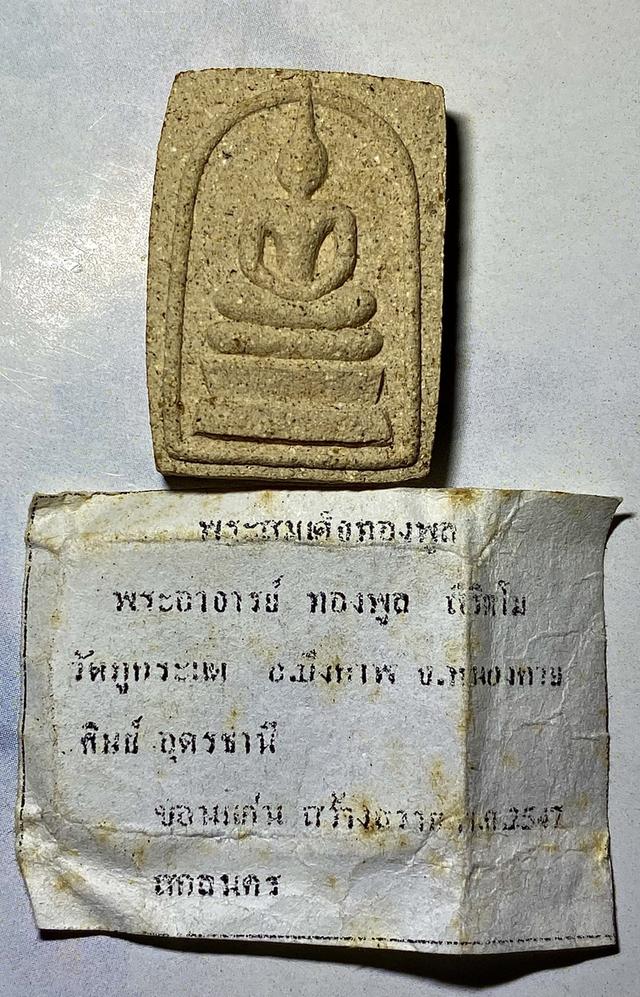 พระสมเด็จทองพูล
พระอาจารย์ ทองพูล สิริกาโม
วัดภูกระแต อ.บึงกาฬ จ.หนองคาย
ศิษย์ อุดรธานี
ขอนแก่น สร้างถวาย พ.ศ.2547
สกลนคร